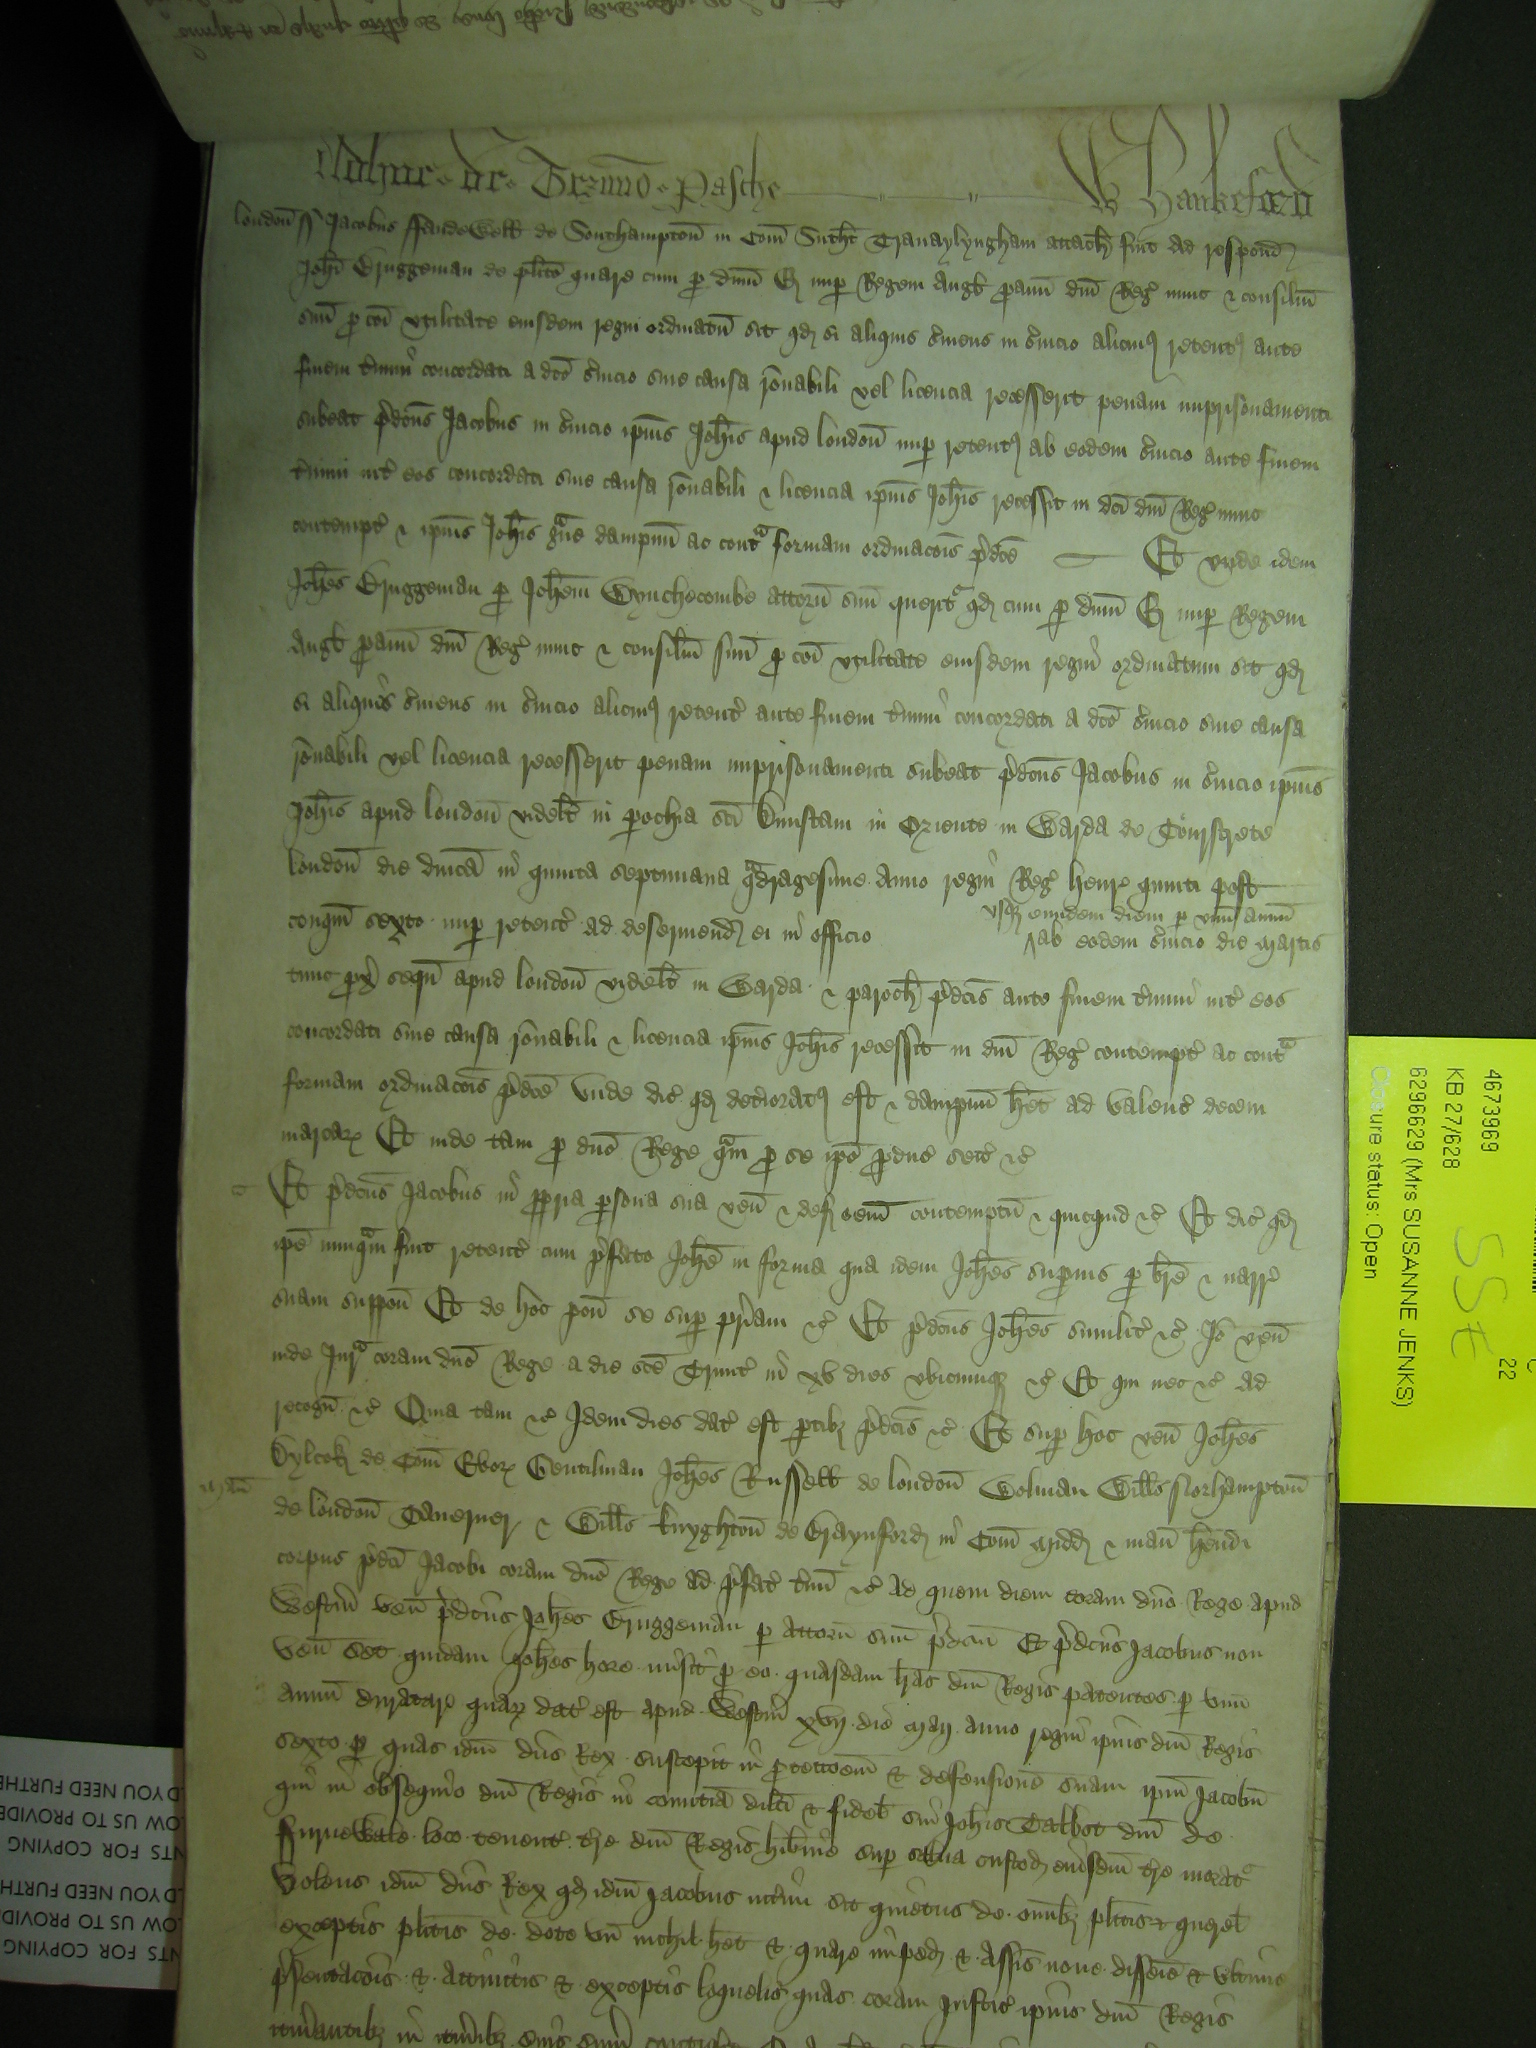 Adhuc de Termino Pasche W Hankeford
london ss Jacobus ffandewell de Southampton in Com Sutht attach fuit ad respond
Johi Bruggeman de plito quare cum p dnm E nup Regem Angl pauu dni Reg nunc & consiliu
suu p coi utilitate eiusdem regni ordinatu sit qd si aliquis serviens in servicio alicuius retentus ante
finem termini concordati a dco servicio sine causa ronabili vel licencia recesserit penam imprisonamenti
subeat pdcus Jacobus in servicio ipius Johis apud london nup retentus ab eodem servicio ante finem
termini int eos concordati sine causa ronabili & licencia ipius Johis recessit in dci dni Reg nunc
contempt & ipius Johis gave dampnu ac contra formam ordinacois pdce Et unde idem
Johes Bruggeman p Johem Wynchecombe attorn suu querit qd cum p dnm E nup Regem
Angl pauu dni Reg nunc & consiliu suu p coi utilitate eiusdem regni ordinatum sit qd
si aliquis serviens in servicio alicuius retent ante finem termini concordati a dco servicio sine causa
ronabili vel licencia recesserit penam imprisonamenti subeat pdcus Jacobus in servicio ipius
Johis apud london videlt in pochia sci Dunstani in Oriente in Warda de Tourstrete
london die dnica in quinta septimana qadragesime anno regni Reg Henr quinti post
conqm sexto nup retent ad deserviend ei in officio
usq eundem diem p unu annu
ab eodem servicio die martis
tunc px sequ apud london videlt in Warda & paroch pdcis ante finem termini int eos
concordati sine causa ronabili & licencia ipius Johis recessit in dni Reg contempt ac contra
formam ordinacois pdce Unde dic qd deterioratus est & dampnu het ad valenc decem
marcar Et inde tam p dno Rege qam p se ipo pduc sect &c
Et pdcus Jacobus in ppria psona sua ven & def omem contemptu & quicquid &c Et dic qd
ipe nunqam fuit retent cum pfato Johe in forma qua idem Johes supius p bre & narr
suam suppon Et de hoc pon se sup priam &c Et pdcus Johes similit &c Io ven
inde Jur coram dno Rege a die sce Trinit in xv dies ubicumq &c Et qui nec &c Ad
recogn &c Quia tam &c Idem dies dat est ptibz pdcis &c Et sup hoc ven Johes
Dylcok de Com Ebor Gentilman Johes Russell de london Wolman Wills Norhampton
de london Taverner & Wills Knyghton de Braynford in Com Midd & manu hendi
corpus pdci Jacobi coram dno Rege ad pfat termin &c Ad quem diem coram dno Rege apud
Westm ven pdcus Johes Bruggeman p attorn suu pdcum Et pdcus Jacobus non
ven set quidam Johes hore misit p eo quasdam lras dni Regis patentes p unu
annu duratar quar dat est apud Westm xvij die Maij anno regni ipius dni Regis
sexto p quas idm dns Rex suscepit in pteccoem & defensione suam ipm Jacobu
qui in obsequio dni Regis in comitia dilci & fidel sui Johis Talbot dni de
ffurnewale loco tenent tre dni Regis hibnie sup salva custod eiusdm tre morat
Volens idm dns Rex qd idm Jacobus interim sit quietus de omibz plitis & querel
exceptis plitis de dote un nichil het & quare imped & assis nove disseie & ultime
psentacois & attinctis & exceptis loquelis quas coram Justic ipius dni Regis
itinerantibz in itineribz suis
4673969
KB 27/628
6296629 (Mrs SUSANNE JENKS)
Closure status: Open
22
SSt
NTS FOR COPYING
LOW US TO PROVIDE
D YOU NEED FURTHE
NTS FOR COPYING
LOW US TO PROVIDE
D YOU NEED FURTHE